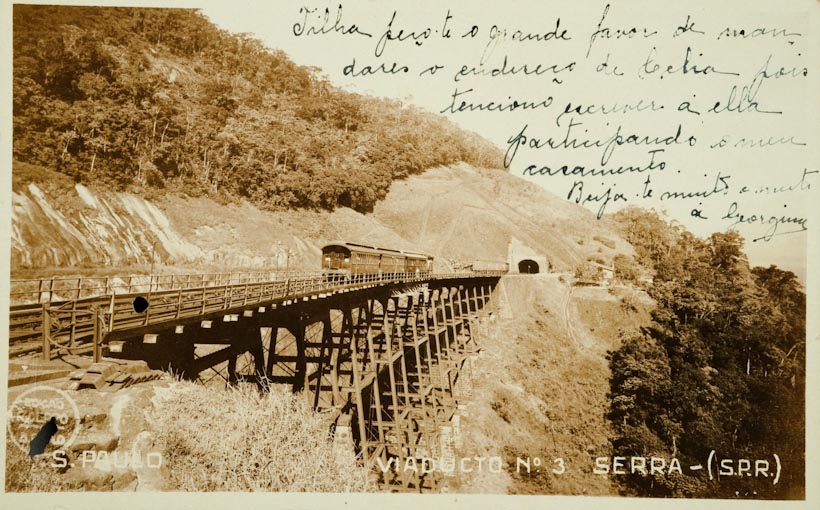 Tilha peço-te o grande favor de man-
dares o endereço de Celia pois
tenciono escrever á ella
participando o meu
casamento.
Beija-te muito e muito
á Georgina
S. PAULO
VIADUCTO Nº 3 SERRA-(S.P.R.)